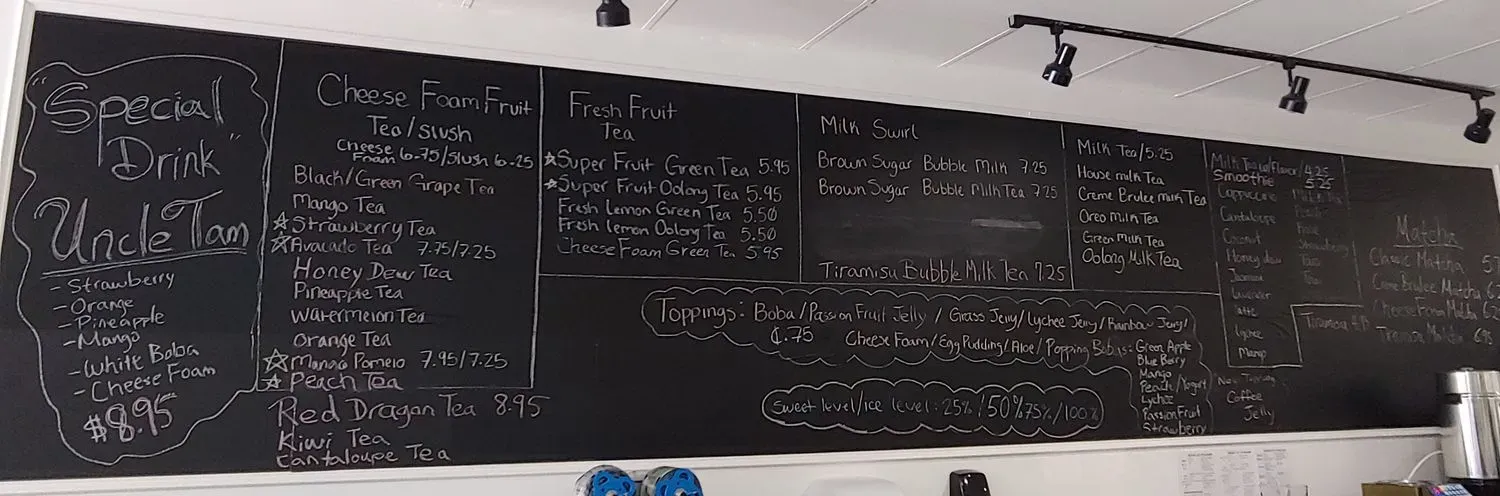 "Special
Drink"
Uncle Tam
- Strawberry
- Orange
- Pineapple
- Mango
- White Boba
- Cheese Foam
$8.95
Cheese Foam Fruit
Tea/slush
Cheese Foam 6.75/Slush 6.25
Black/Green Grape Tea
Mango Tea
☆ Strawberry Tea
☆ Avacado Tea 7.75/7.25
Honey Dew Tea
Pineapple Tea
Watermelon Tea
Orange Tea
☆ Mango Pomelo 7.95/7.25
☆ Peach Tea
Red Dragon Tea 8.95
Kiwi Tea
Cantaloupe Tea
Fresh Fruit
Tea
☆ Super Fruit Green Tea 5.95
☆ Super Fruit Oolong Tea 5.95
Fresh Lemon Green Tea 5.50
Fresh lemon Oolong Tea 5.50
Cheese Foam Green Tea 5.95
Milk Swirl
Brown Sugar Bubble Milk 7.25
Brown Sugar Bubble Milk Tea 7.25
Tiramisu Bubble Milk Tea 7.25
Milk Tea/5.25
House milk Tea
Creme Brulee milk Tea
Oreo Milk Tea
Green Milk Tea
Oolong Milk Tea
Milk Tea w/Flavor/4.25
Smoothie 5.25
Cappuccino
Cantaloupe
Coconut
Honey dew
Jasmine
Lavender
Latte
Lychee
Mango
Strawberry
Taro
Matcha
Classic Matcha
Creme Brulee Matcha
Cheese Foam Matcha
Tiramisu Matcha
Toppings: Boba/Passion Fruit Jelly / Grass Jelly/Lychee Jelly/Rainbow Jelly/
¢.75 Cheese Foam/Egg Pudding/Aloe/Popping Bobas: Green Apple
Blue Berry
Mango
Peach/Yogurt
Lychee
Passion Fruit
Strawberry
New Topping
Coffee
Jelly
Sweet level/ice level: 25%/50%75%/100%